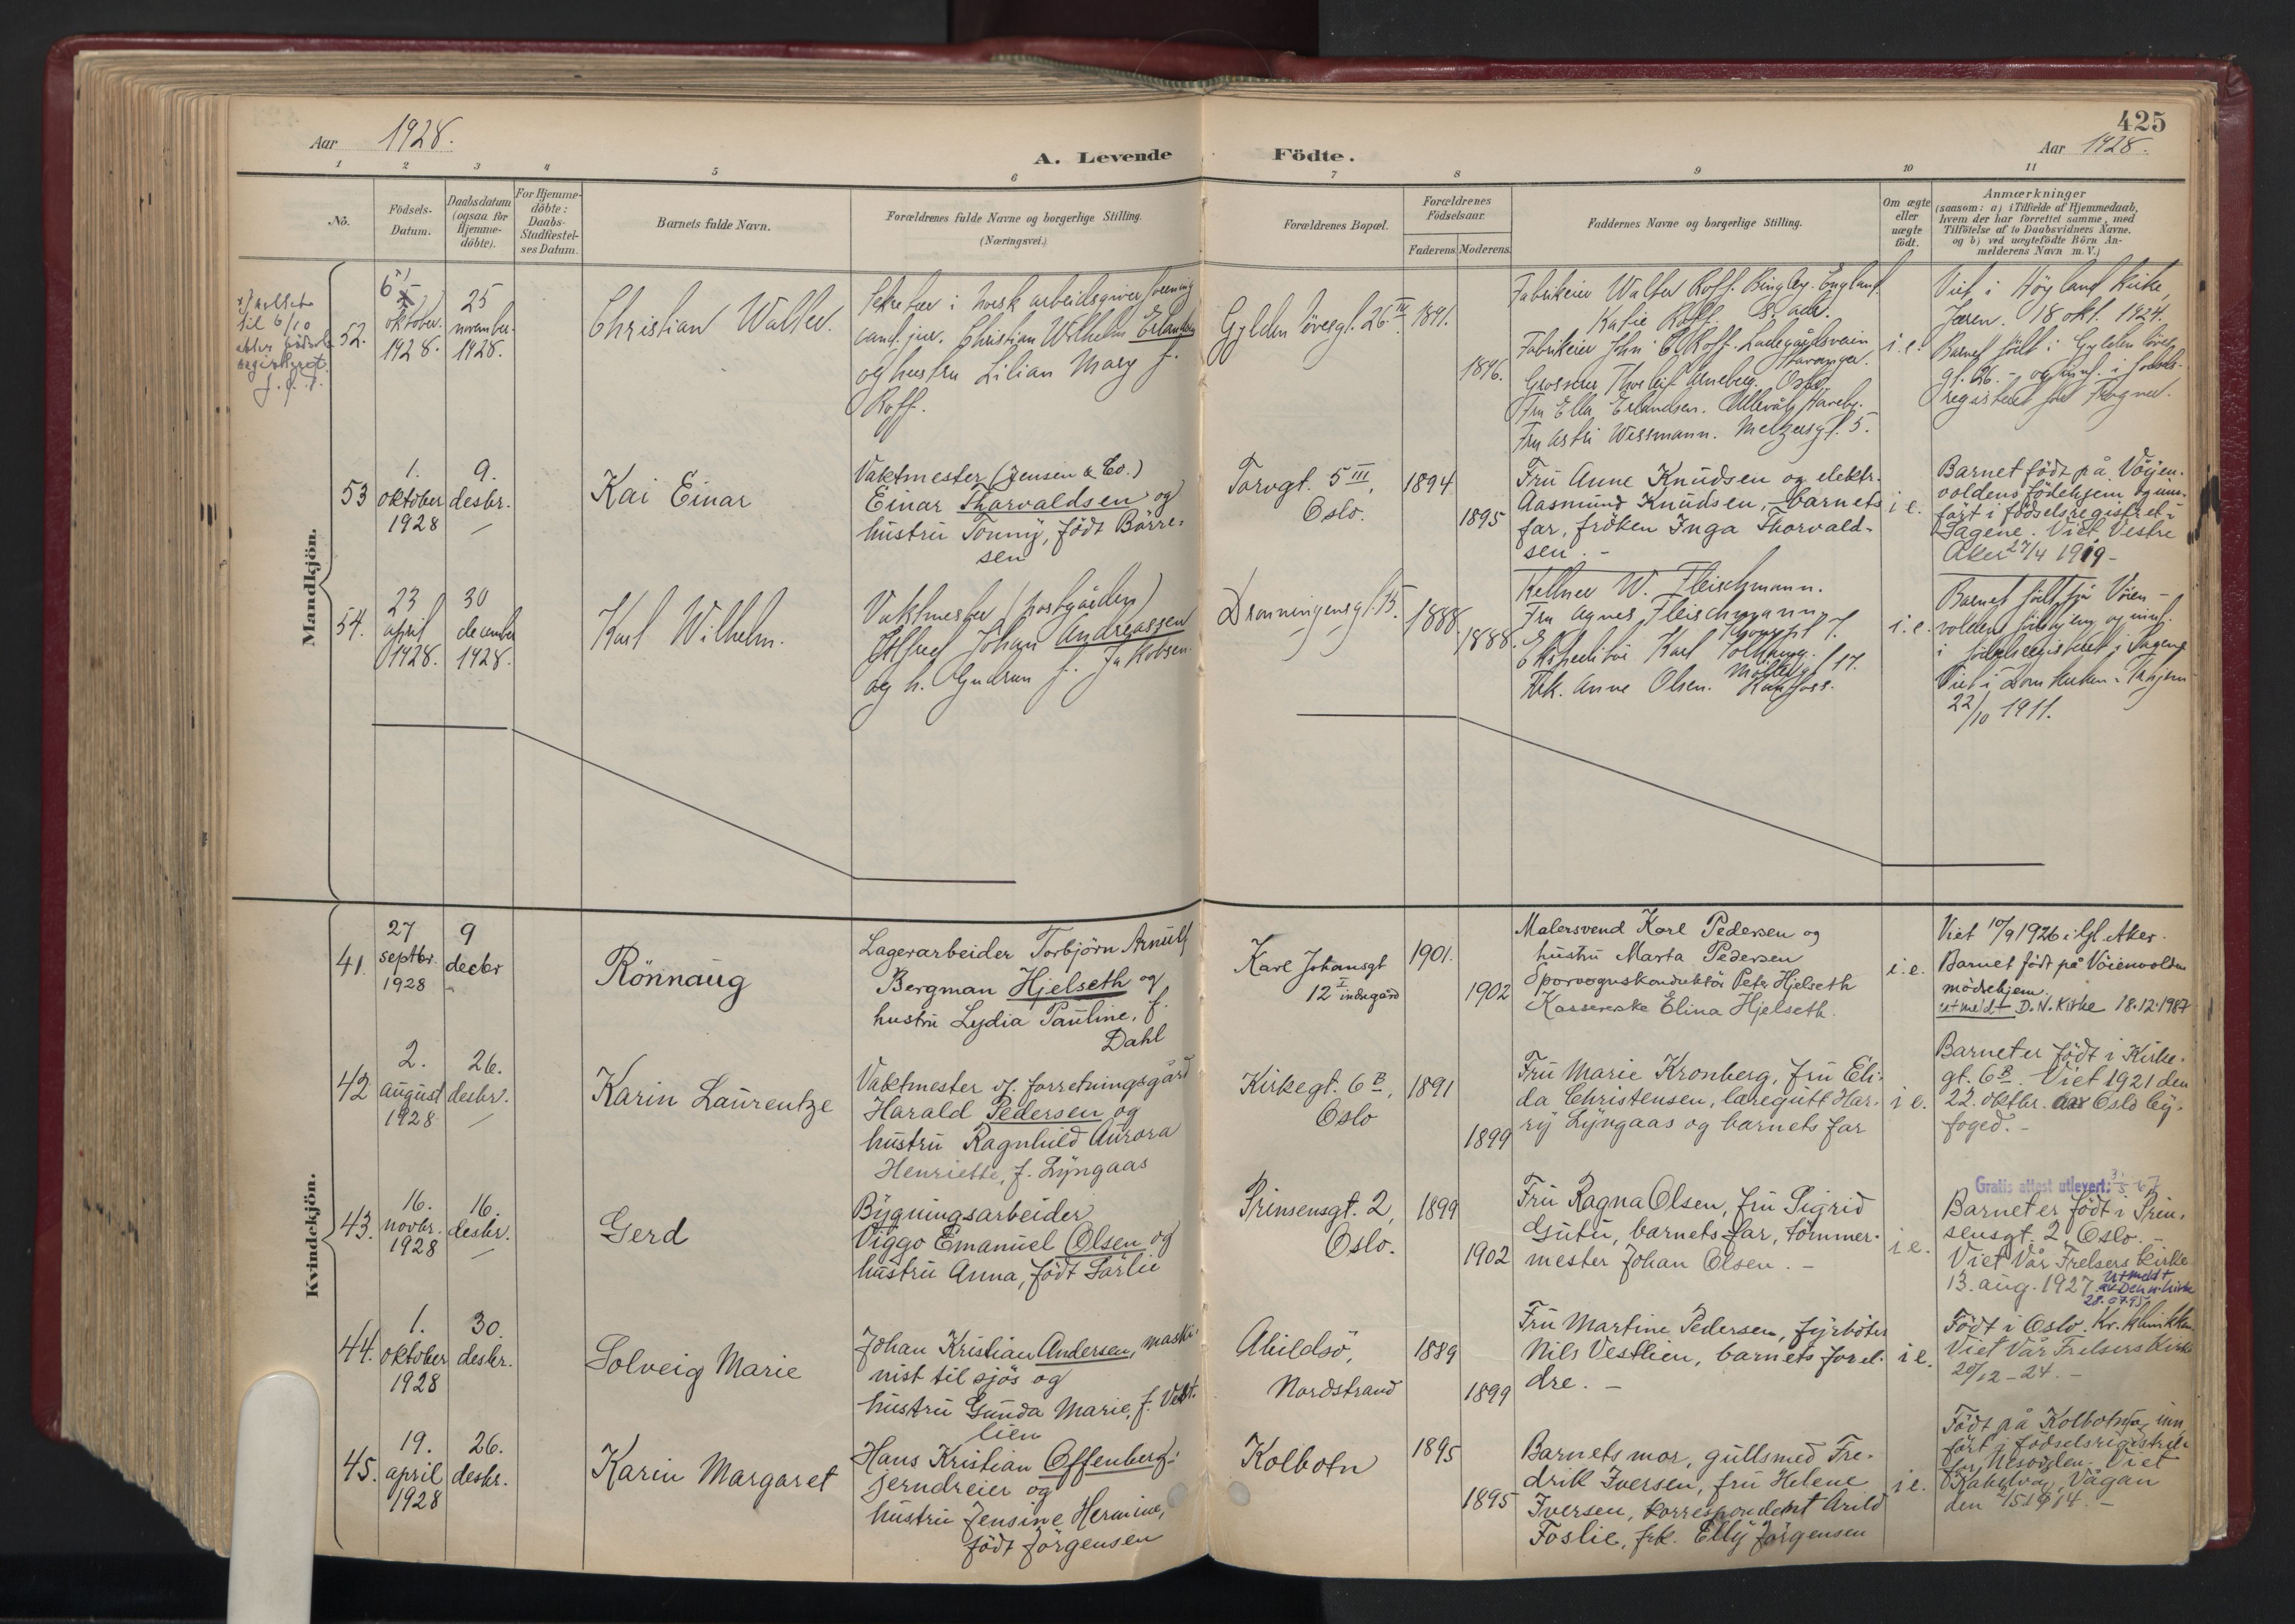 425
Aar 1928.
A. Levende Födte.
Aar 1928.
1 2 3 4 5 6 7 8 9 10 11
No.
Födsels-
Datum.
Daabsdatum
(ogsaa for
Hjemme-
döbte).
For Hjemme-
döbte:
Daabs-
Stadfæstel-
ses Datum.
Barnets fulde Navn.
Forældrenes fulde Navne og borgerlige Stilling.
(Næringsvei.)
Forældrenes Bopæl.
Forældrenes
Födselsaar.
Faderens. Moderens.
Faddernes Navne og borgerlige Stilling.
Om ægte
eller
uægte
födt.
Anmærkninger
(saasom: a) i Tilfælde af Hjemmedaab,
hvem der har forrettet samme, med
Tilföielse af to Daabsvidners Navne,
og b) ved uægtefödte Börn An-
melderens Navn m. V.)
Mandkjön.
til 6/10
52.
oktober
1928.
25
november
1928.
Christian Walter.
Sekretær i norsk arbeidsgiverforening
cand. jur. Christian Wilhelm Erlandsen
og hustru Lilian Mary f.
Roff.
Gylden lövesgt. 26 III
1891.
1896.
Fabrikeier Walter Roff. Bingley. England.
Katie Roff. S. adr.
Fabrikeier John E. Roff. Ladegårdsveien
Stavanger.
Grosserer Thorleif Arneberg. Oslo.
Fru Ella Erlandsen. Ullevål Haveby.
Fru Astri Wessmann. Meltzersgt. 5.
i. e.
Viet i Höyland kirke,
Jæren. 18 okt. 1924.
Barnet födt i Gylden löves
gt. 26. - og innf. i födsels-
registeret for Frogner.
53
1.
oktober
1928
9.
desbr.
Kai Einar
Vaktmester (Jensen & Co.)
Einar Thorvaldsen og
hustru Tonny, födt Börre-
sen
Torvgt. 5 III,
Oslo.
1894
1895
Fru Anne Knudsen og elektr.
Aasmund Knudsen, barnets
far, fröken Inga Thorvald-
sen. -
i e.
Barnet födt på Vöyen-
voldens födehjem og inn-
fört i födselsregistret i
Sagene. Viet Vestre
Aker 27/4 1919 -
54.
23
april
1928.
30
december
1928.
Karl Wilhelm.
Vaktmester (postgården)
Johan Andreassen
og h. Gudrun f. Jakobsen.
Dronningensgt. 15.
1888
1888.
Kellner W. Fleischmann.
Fru Agnes Fleischmann
Torvgt 7.
Ekspeditör Karl
Möllergt 17.
Frk. Anne Olsen. Hönefoss.
i. e.
Barnet födt på Vöien-
volden födehjem, og innf.
i födselsregisteret i Sagene
Viet i Domkirken i Trhjem
22/10 1911.
Kvindekjön.
41.
27
septbr.
1928
9
decbr
Rönnaug
Lagerarbeider Torbjörn Arnulf
Bergman Hjelseth og
hustru Lydia Pauline, f.
Dahl
Karl Johansgt
12 I indregård
1901.
1902
Malersvend Karl Pedersen og
hustru Marta Pedersen
Sporvognskonduktör Peter Hjelseth
Kassererske Elina Hjelseth.
i. e.
Viet 10/9 1926 i Gl. Aker.
Barnet födt på Vöienvolden
mödrehjem.
utmeldt D. N. Kirke 18.12.1987
42
2.
august
1928
26.
desbr.
Karin Laurentze
Vaktmester v. forretningsgård
Harald Pedersen og
hustru Ragnhild Aurora
Henriette, f. Lyngaas
Kirkegt. 6 B,
Oslo
1891
1899
Fru Marie Kronberg, fru Eli-
da Christensen, læregutt Har-
ry Lyngaas og barnets far
i e.
Barnet er födt i Kirke-
gt. 6 B. Viet 1921 den
22. oktbr. Oslo by-
foged. -
43.
16.
novbr.
1928
16.
desbr.
Gerd
Bygningsarbeider
Viggo Emanuel Olsen og
hustru Anna, födt Sörlie
Prinsensgt. 2,
Oslo.
1899
1902
Fru Ragna Olsen, fru Sigrid
Gutu, barnets far, tömmer-
mester Johan Olsen. -
i e.
Gratis attest utlevert:
Barnet er födt i Prin-
sensgt. 2, Oslo. -
Viet Vår Frelsers kirke
13. aug. 1927
Utmeldt
av Den n. kirke
28.07.95
44.
1.
oktober
1928
30.
desbr.
Solveig Marie
Johan Kristian Andersen, maski-
nist til sjös og
hustru Gunda Marie, f. Vest-
lien
Abildsö,
Nordstrand
1889
1899
Fru Martine Pedersen, fyrböter
Nils Vestlien, barnets forel-
dre. -
i e.
Födt i Oslo. Kv. klinikken
Viet Vår Frelsers kirke
20/12 - 24. -
45.
19.
april
1928
26.
desbr.
Karin Margaret
Hans Kristian Offenberg:
jerndreier og
hustru Jensine Hermine,
födt Jörgensen
Kolbotn
1895
1895
Barnets mor, gullsmed Fre-
drik Iversen, fru Helene
Iversen, korrespondent Arild
Foslie, frk. Elly Jörgensen
i e.
Födt på Kolbotn og inn-
fört i födselsregistret
for Nesodden. Viet
Kabelvåg, Vågan